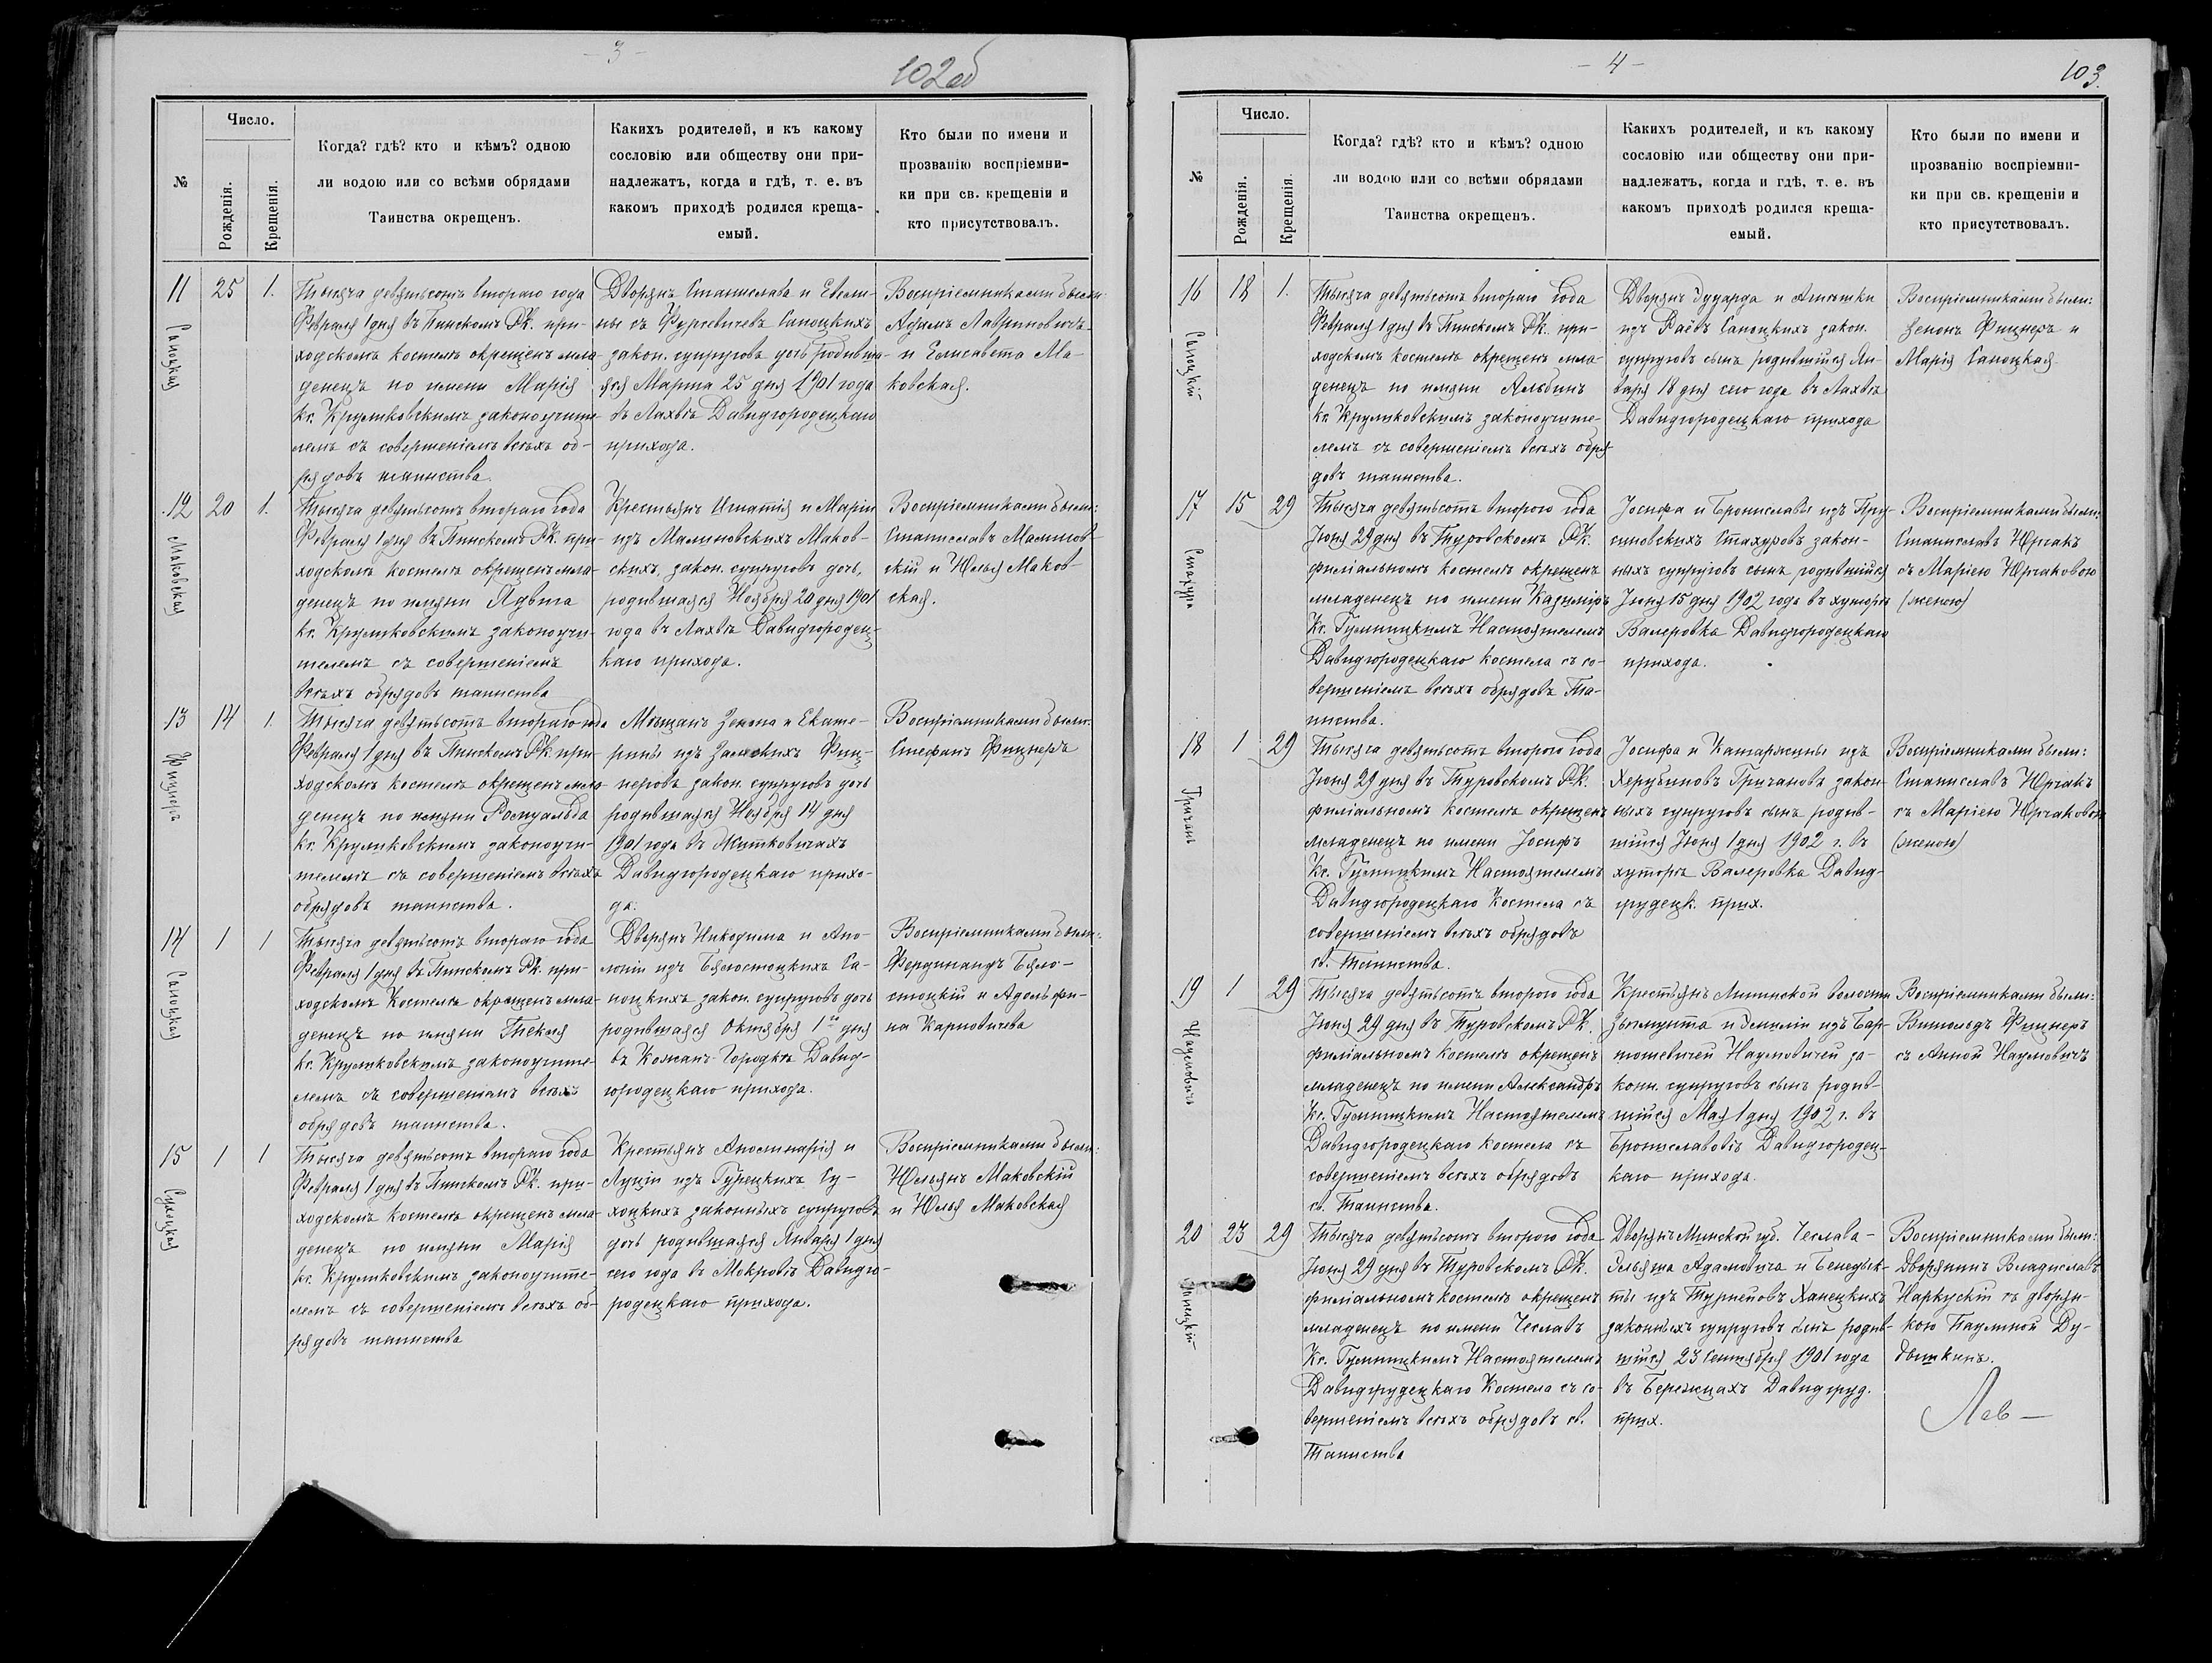 - 3 -
102об
№
Число.
Рожденія.
Крещенія.
Когда? гдѣ? кто и кѣмъ? одною
ли водою или со всѣми обрядами
Таинства окрещенъ.
Какихъ родителей, и къ какому
сословію или обществу они при-
надлежатъ, когда и гдѣ, т. е. въ
какомъ приходѣ родился креща-
емый.
Кто были по имени и
прозванію воспріемни-
ки при св. крещеніи и
кто присутствовалъ.
11
Сапоцкая
25
1.
Тысяча девятьсотъ втораго года
Февраля 1 дня въ Пинскомъ Р.К. при-
ходскомъ костелѣ окрещенъ мла-
денецъ по имени Марія
кс. Круликовскимъ законоучите-
лемъ съ совершеніемъ всѣхъ об-
рядовъ таинства.
Дворянъ Станислава и Евели-
ны съ Фургевичевъ Сапоцкихъ
закон. супруговъ дочь родивша-
яся Марта 25 дня 1901 года
въ Лахвѣ Давидгородецкаго
прихода.
Воспріемниками были:
Адамъ Лавриновичъ
и Елисавета Ма-
ковская.
12
Маковская
20
1.
Тысяча девятьсотъ втораго года
Февраля 1 дня въ Пинскомъ Р.К. при-
ходскомъ костелѣ окрещенъ мла-
денецъ по имени Ядвига
кс. Круликовскимъ законоучи-
телемъ съ совершеніемъ
всѣхъ обрядовъ таинства
Крестьянъ Игнатія и Маріи
изъ Малиновскихъ Маков-
скихъ, закон. супруговъ дочь,
родившаяся Ноября 20 дня 1901
года въ Лахвѣ Давидгородец-
каго прихода.
Воспріемниками были:
Станиславъ Малинов-
скій и Юлья Маков-
ская.
13
Фицнеръ
14
1.
Тысяча девятьсотъ втораго года
Февраля 1 дня въ Пинскомъ Р.К. при-
ходскомъ костелѣ окрещенъ мла-
денецъ по имени Ромуальда
кс. Круликовскимъ законоучи-
телемъ съ совершеніемъ всѣхъ
обрядовъ таинства.
Мѣщанъ Зенона и Екате-
рины изъ Фиц-
неровъ закон. супруговъ дочь
родившаяся Ноября 14 дня
1901 года въ Житковичахъ
Давидгородецкаго прихо-
да.
Воспріемниками были:
Стефанъ Фицнеръ
14
Сапоцкая
1
1
Тысяча девятьсотъ втораго года
Февраля 1 дня въ Пинскомъ Р.К. при-
ходскомъ Костелѣ окрещенъ мла-
денецъ по имени Текля
кс. Круликовскимъ законоучите-
лемъ съ совершеніемъ всѣхъ
обрядовъ таинства.
Дворянъ Никодима и Апо-
лоніи изъ Бялостоцкихъ Са-
поцкихъ закон. супруговъ дочь
родившаяся Октября 1го дня
въ Кожан-Городкѣ Давид-
городецкаго прихода.
Воспріемниками были:
Фердинандъ Бяло-
стоцкій и Адольфи-
на Карповичева
15
Сухоцкая
1
1
Тысяча девятьсотъ втораго года
Февраля 1 дня въ Пинскомъ Р.К. при-
ходскомъ костелѣ окрещенъ мла-
денецъ по имени Марія
кс. Круликовскимъ законоучите-
лемъ съ совершеніемъ всѣхъ об-
рядовъ таинства
Крестьянъ Аполинарія и
Луціи изъ Гурецкихъ Су-
хоцкихъ законныхъ супруговъ
дочь родившаяся Января 1 дня
сего года въ Мокровѣ Давидго-
родецкаго прихода.
Воспріемниками были:
Юльянъ Маковскій
и Юлья Маковская
- 4 -
103.
№
Число.
Рожденія.
Крещенія.
Когда? гдѣ? кто и кѣмъ? одною
ли водою или со всѣми обрядами
Таинства окрещенъ.
Какихъ родителей, и къ какому
сословію или обществу они при-
надлежатъ, когда и гдѣ, т. е. въ
какомъ приходѣ родился креща-
емый.
Кто были по имени и
прозванію воспріемни-
ки при св. крещеніи и
кто присутствовалъ.
16
Сапоцкій
18
1.
Тысяча девятьсотъ втораго года
Февраля 1 дня въ Пинскомъ Р.К. при-
ходскомъ костелѣ окрещенъ мла-
денецъ по имени Альбинъ
кс. Круликовскимъ законоучите-
лемъ съ совершеніемъ всѣхъ обря-
довъ таинства.
Дворянъ Эдуарда и
изъ Раёвъ Сапоцкихъ закон.
супруговъ сынъ родившійся Ян-
варя 18 дня сего года въ Лахвѣ
Давидгородецкаго прихода
Воспріемниками были:
Зенонъ Фицнеръ и
Марія Сапоцкая.
17
Стахура
15
29
Тысяча девятьсотъ второго года
Іюня 29 дня въ Туровскомъ Р.К.
филіальномъ костелѣ окрещенъ
младенецъ по имени Казиміръ
Кс. Гумницкимъ Настоятелемъ
Давидгородецкаго костела съ со-
вершеніемъ всѣхъ обрядовъ Та-
инства.
Іосифа и Брониславы изъ Пру-
синовскихъ Стахуровъ закон-
ныхъ супруговъ сынъ родившійся
Іюня 15 дня 1902 года въ хуторѣ
Валеровка Давидгородецкаго
прихода.
Воспріемниками были:
Станиславъ Юрчакъ
съ Маріею Юрчаковою
(женою)
18
Гричанъ
1
29
Тысяча девятьсотъ второго года
Іюня 29 дня въ Туровскомъ Р.К.
филіальномъ костелѣ окрещенъ
младенецъ по имени Іосифъ
Кс. Гумницкимъ Настоятелемъ
Давидгородецкаго Костела съ
совершеніемъ всѣхъ обрядовъ
св. Таинства.
Іосифа и Катаржины изъ
Херубиновъ Гричановъ закон-
ныхъ супруговъ сынъ родив-
шійся Іюня 1 дня 1902 г. въ
хуторѣ Валеровка Давид-
грудецк. прих.
Воспріемниками были:
Станиславъ Юрчакъ
съ Маріею Юрчаковою
(женою)
19
Наумовичъ
1
29
Тысяча девятьсотъ второго года
Іюня 29 дня въ Туровскомъ Р.К.
филіальномъ костелѣ окрещенъ
младенецъ по имени Александръ
Кс. Гумницкимъ Настоятелемъ
Давидгородецкаго костела съ
совершеніемъ всѣхъ обрядовъ
св. Таинства.
Крестьянъ волости
Зыгмунта и Эмиліи изъ Бар-
тошевичей Наумовичей за-
конн. супруговъ сынъ родив-
шійся Мая 1 дня 1902 г. въ
Брониславовѣ Давидгородец-
каго прихода.
Воспріемниками были:
Витольдъ Фицнеръ
съ Анной Наумовичъ
20
Ханецкій
23
29
Тысяча девятьсотъ второго года
Іюня 29 дня въ Туровскомъ Р.К.
филіальномъ костелѣ окрещенъ
младенецъ по имени Чеславъ
Кс. Гумницкимъ Настоятелемъ
Давидгрудецкаго Костела съ со-
вершеніемъ всѣхъ обрядовъ св.
Таинства
Дворянъ Минской губ. Чеслава-
Адамовича и Бенедык-
ты изъ Ханецкихъ
законныхъ супруговъ сынъ родив-
шійся 23 Сентября 1901 года
въ Бережцахъ Давидгруд.
прих.
Воспріемниками были:
Дворянинъ Владиславъ
Наркускій съ дворян-
кою Паулиной Ду-
Лев-